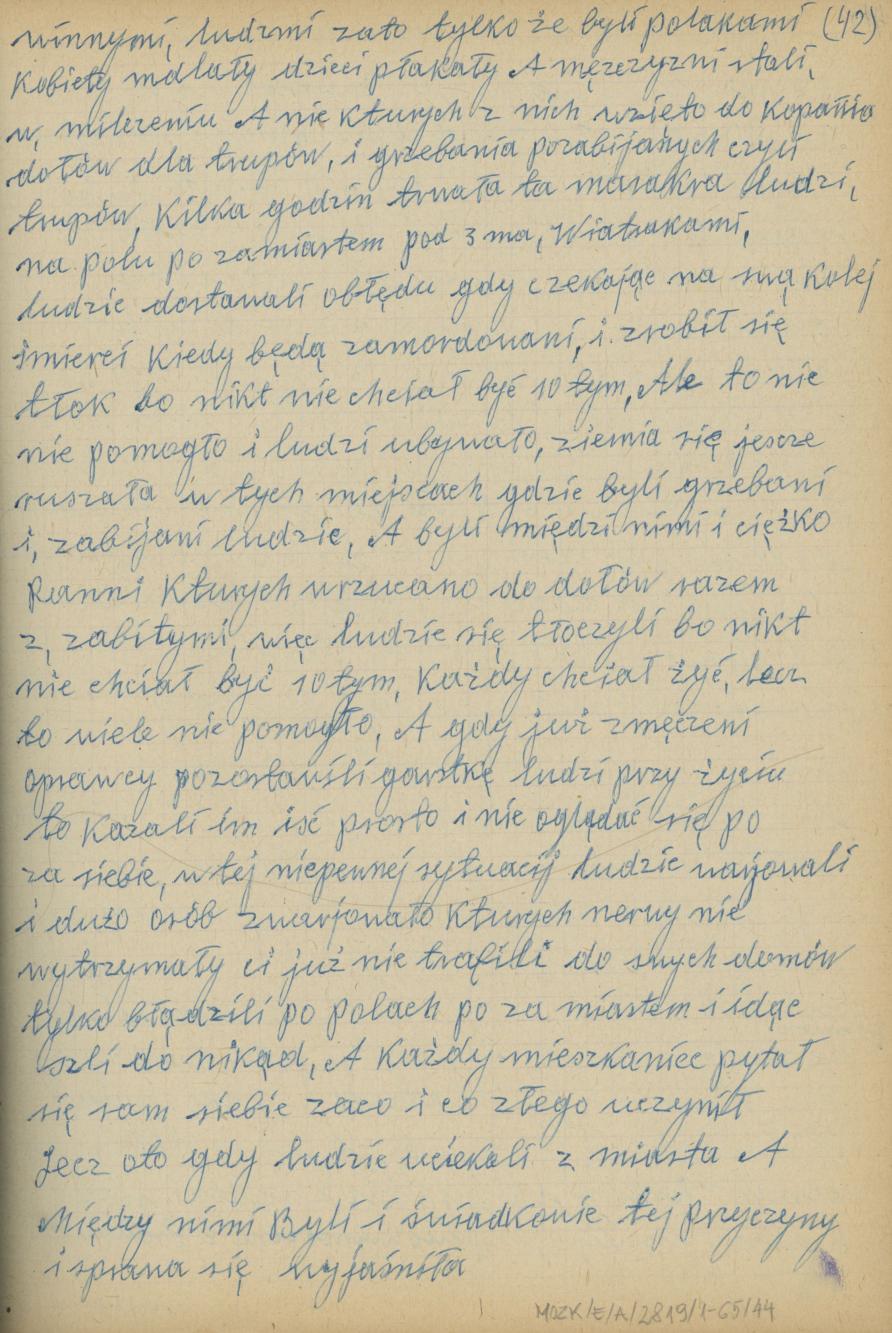 winnymi, ludzmi zato tylko że byli polakami (42)
Kobiety mdlały dzieci płakały A męzczyzni stali,
w, milczeniu A nie kturych z nich wzieto do kopania
dotów dla trupów, i grzebania pozabijanych czyli
trupów, Kilka godzin trwała ta masakra ludzi,
na polu po zamiastem pod 3 ma, Wiatrakami,
ludzie dostawali obłędu gdy czekając na swą kolej
śmierci Kiedy będą zamordowani, i zrobił się
tłok bo nikt nie chciał być 10 tym, Ale to nie
nie pomogło i ludzi ubywało, ziemia się jescze
ruszała w tych miejscach gdzie byli grzebani
i, zabijani ludzie, A byli międzi nimi i ciężko
Ranni Kturych wrzucano do dołów razem
z, zabitymi, więc ludzie się tłoczyli bo nikt
nie chciał być 10 tym, Każdy chciał żyć, lecz
to wiele nie pomogło, A gdy już zmęczeni
oprawcy pozostawili garstkę ludzi przy życiu
to Kazali im iść prosto i nie oglądać się po
za siebie, w tej niepewnej sytuacij ludzie warjowali
i dużo osób zwarjowało Kturych nerwy nie
wytrzymały ci już nie trafili do swych domów
tylko błądzili po polach po za miastem i idąc
szli do nikąd, A Każdy mieszkaniec pytał
się sam siebie zaco i co złego uczynił
Lecz oto gdy ludzie uciekali z miasta A
Między nimi Byli i świadkowie tej przyczyny
i sprawa się wyjaśniła
MOZK/E/A/2819/1-65/44